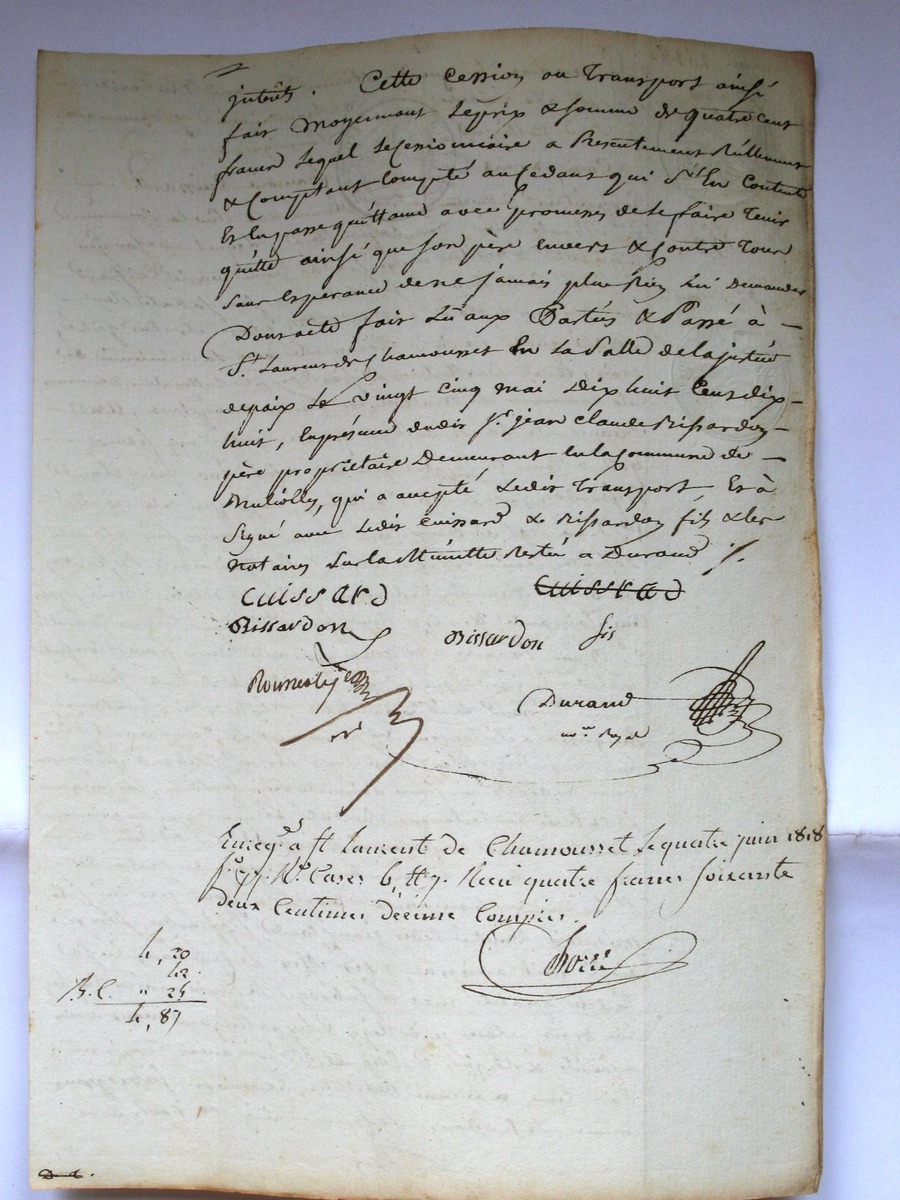 interêts. Cette Cession ou Transport ainsi
fait Moyennant Le prix & somme de quatre cent
francs Lequel Le Cessionnaire a Presentement Réellement
& Comptant Compté au Cedant qui S'En Contente
Et En passe quittance avec promesse de le faire Tenir
quitte ainsi que son père Envers & Contre Tous
Sans Esperance de ne jamais plus Rien Lui Demander
Dont acte fait Lû aux Parties & Passé à —
St. Laurent de Chamousset En La Salle de la justice
de paix Le Vingt Cinq mai Dix huit Cent dix —
huit, En présence dudit Sr. jean Claude Bissardon —
père propriétaire Demeurant En la Commune de —
qui a accepté Ledit Transport, Et à
Signé avec Ledit Cuissard & Bissardon fils & les
Notaires Sur la Minutte Restée a Durand ./.
CUISSARD
CUISSRAD
Bissardon
Bissardon fis
Durand
nre Royal
Enreg. a St Laurent de Chamousset le quatre juin 1818
Cases 6, et 7. Recu quatre francs soixante
deux Centimes décime Compris.
4, 20
42
B.C. " 25
4, 87